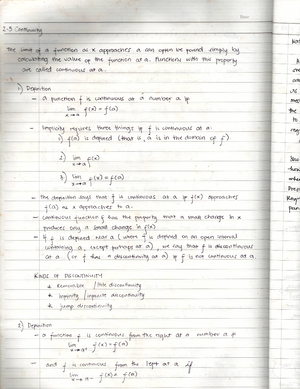 2.5 Continuity
The limit of a function as x approaches a can often be found simply by
calculating the value of the function at a. Functions with this property
are called continuous at a.
1) Definition
- a function f is continuous at a number a if
lim f(x) = f(a)
x→a
- Implicitly requires three things if f is continuous at a:
1) f(a) is defined (that is, a is in the domain of f)
2) lim f(x)
x→a
3) lim f(x) = f(a)
x→a
- The definition says that f is continuous at a if f(x) approaches
f(a) as x approaches to a.
- continuous function f has the property that a small change in x
produces only a small change in f(x)
- If f is defined near a (when f is defined on an open interval
containing a, except perhaps at a), we say that f is discontinuous
at a (or f has a discontinuity at a) if f is not continuous at a.
KINDS OF DISCONTINUITY
* Removable / Hole discontinuity
* Infinity / infinite discontinuity
* jump discontinuity
2) Definition
- a function f is continuous from the right at a number a if
lim f(x) = f(a)
x→a+
- and f is continuous from the left at a if
lim f(x) = f(a)
x→a-